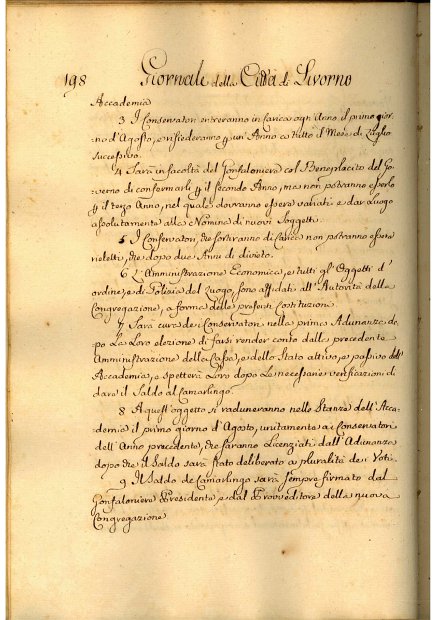 198 Giornale della Città di Livorno
Accademia
3 I Conservatori entreranno in Carica ogn' Anno il primo gior-
no d'Agosto, e risiederanno p un' Anno a tutto il Mese di Luglio
successivo.
4 Sarà in facoltà del Gonfaloniere col Beneplacito del Go-
verno di confermarli p il secondo Anno, ma non potranno esserlo
p il terzo Anno, nel quale dovranno essere variati e dar luogo
assolutamente alla Nomina di nuovi Soggetti.
5 I Conservatori, che sortiranno di Carica non potranno essere
rieletti, che dopo due Anni di divieto.
6 L'Amministrazione Economica, e tutti gl' Oggetti d'
ordine, e di Polizia del Luogo, sono affidati all' Autorità della
Congregazione, a forma delle presenti Costituzioni
7 Sarà cura de i Conservatori nella prima Adunanza do-
po la loro elezione di farsi render conto dalla precedente
Amministrazione della Cassa, e dello Stato attivo, e passivo dell'
Accademia, e spetterà Loro dopo le necessarie verificazioni di
dare il Saldo al Camarlingo.
8 A quest' oggetto si raduneranno nelle Stanze dell' Acca-
demia il primo giorno d'Agosto, unitamente a i Conservatori
dell' Anno precedente, che saranno Licenziati dall' Adunanza
dopo che il Saldo sarà stato deliberato a pluralità de i Voti.
9 Il Saldo de Camarlingo sarà sempre firmato dal
Gonfaloniere Presidente, e dal Provveditore della nuova
Congregazione